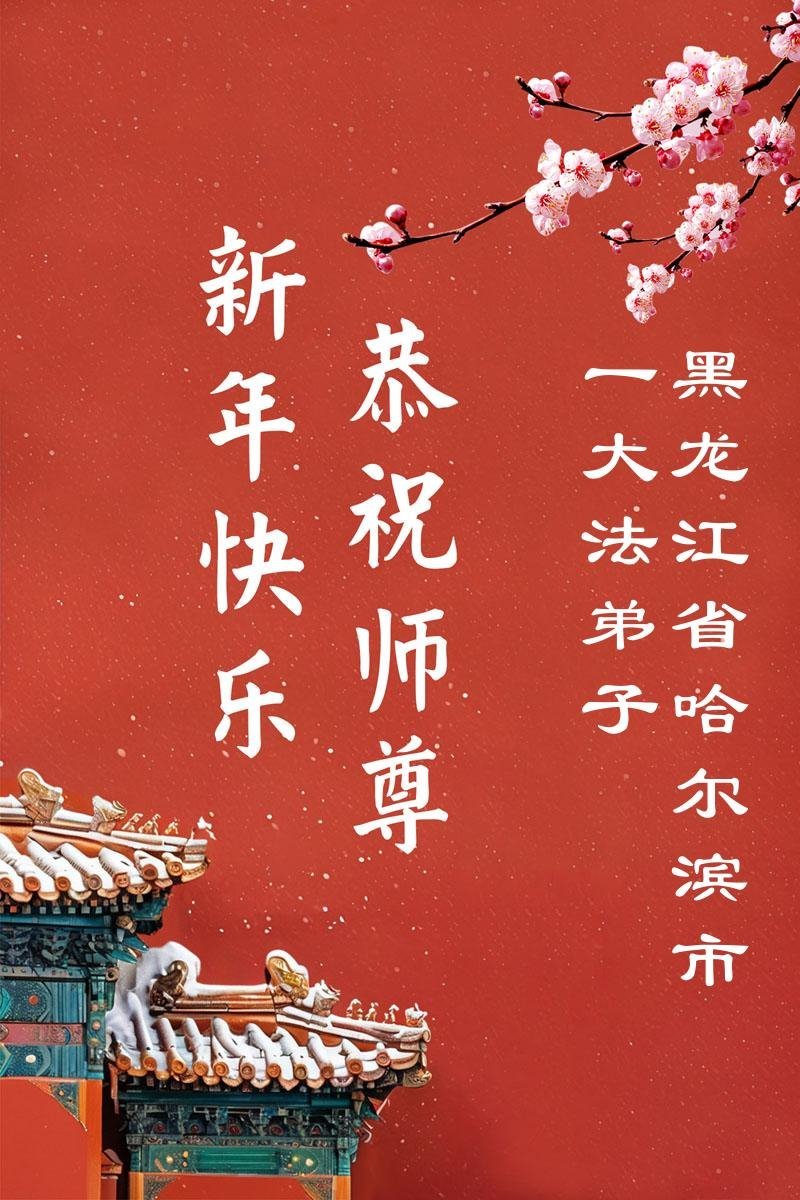 黑龙江省哈尔滨市
一大法弟子
恭祝师尊
新年快乐